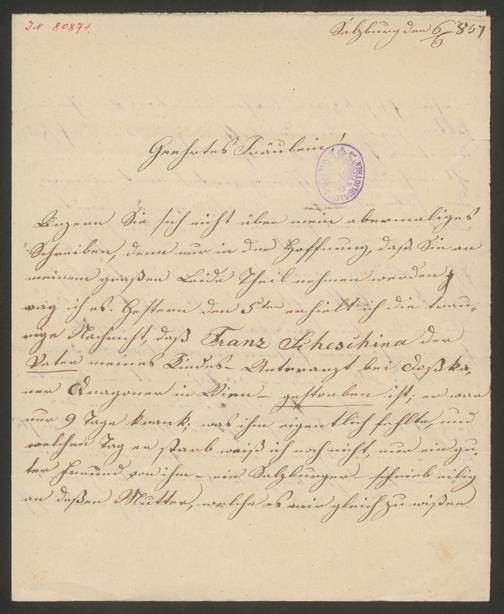 J.N. 80871.
Salzburg den 6/6 857
Geehrtes Fräulein!
BIBLIOTHEK
Zürnen Sie sich nicht über mein abermaliges
Schreiben, denn nur in der Hoffnung, daß Sie an
meinem großen Leide Theil nehmen werden,
wag ich es. Gestern den 5ten erhielt ich die trau-
rige Nachricht, daß Franz Scheschina der
Vater meines Kindes – Unterarzt bei
Dragoner in Wien – gestorben ist; er war
nur 9 Tage krank; was ihm eigentlich fehlte, und
welchen Tag er starb weiß ich noch nicht, nur ein gu-
ter Freund von ihm – ein Salzburger – schrieb eilig
an deßen Mutter, welche es mir gleich zu wißen